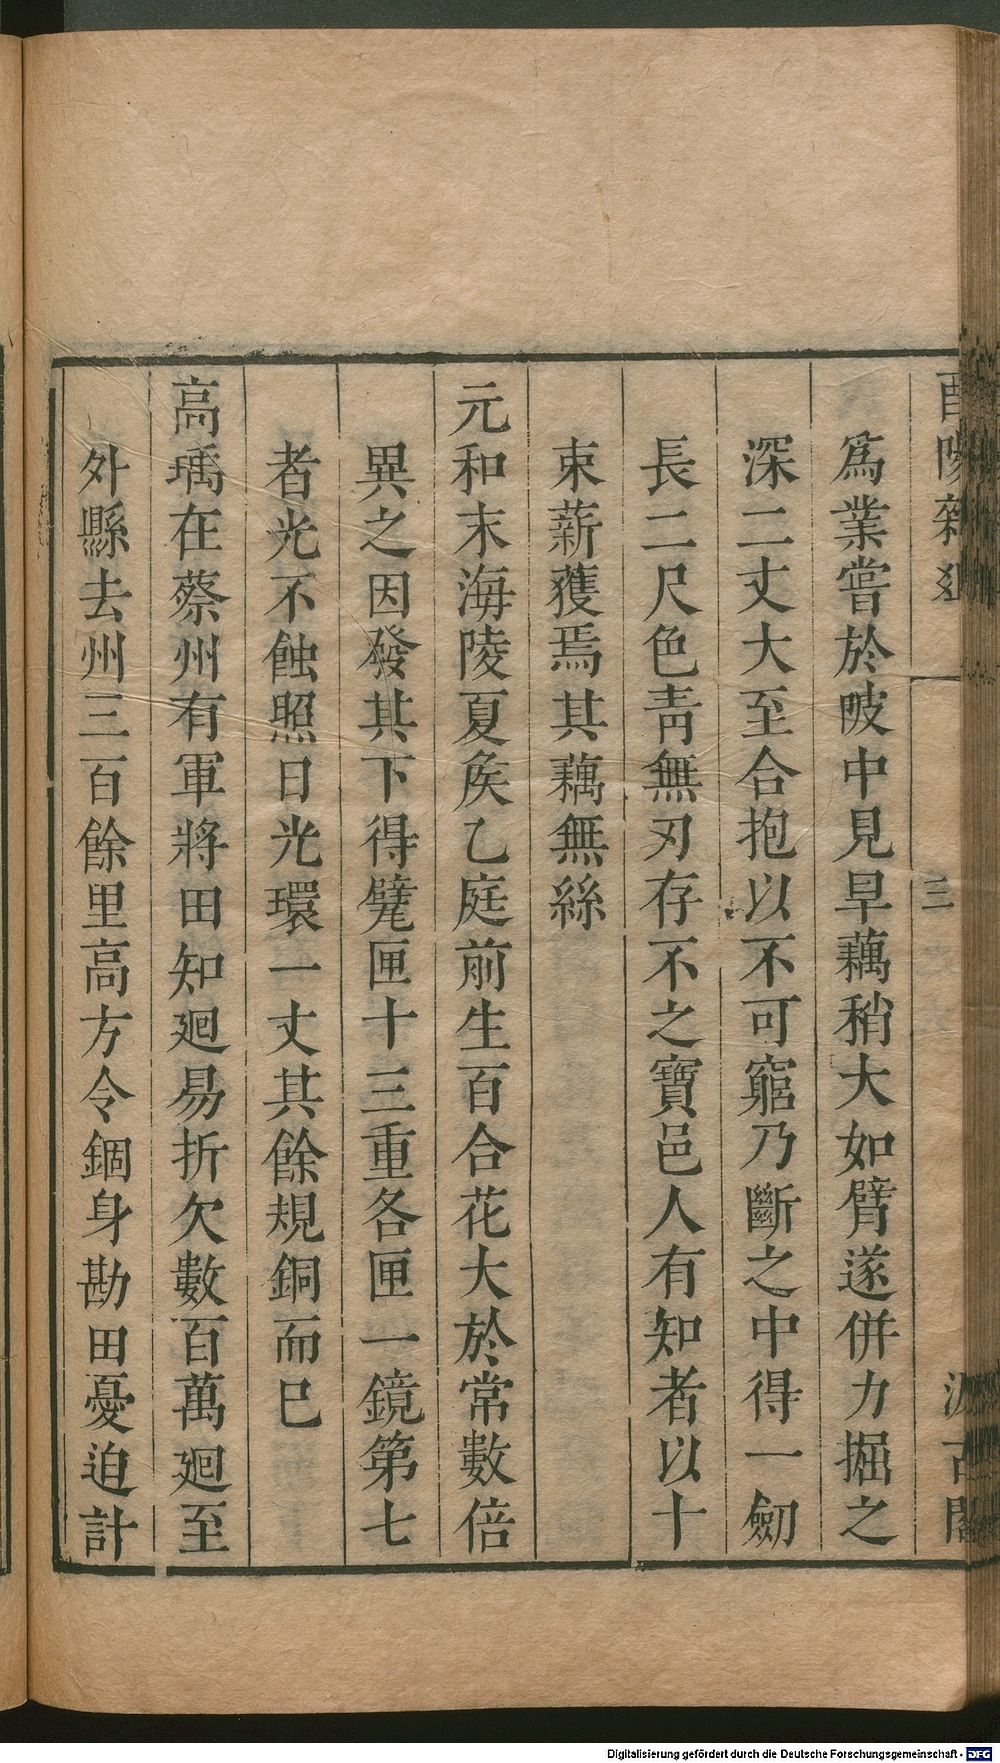 酉陽雜俎
三
汲古閣
爲業嘗於陂中見旱藕稍大如臂遂併力掘之
深二丈大至合抱以不可窮乃斷之中得一劒
長二尺色靑無刃存不之寶邑人有知者以十
束薪獲焉其藕無絲
元和末海陵夏矦乙庭前生百合花大於常數倍
異之因發其下得甓匣十三重各匣一鏡第七
者光不蝕照日光環一丈其餘規銅而已
高瑀在蔡州有軍將田知廻易折欠數百萬廻至
外縣去州三百餘里高方令錮身勘田憂迫計
Digitalisierung gefördert durch die Deutsche Forschungsgemeinschaft - DFG